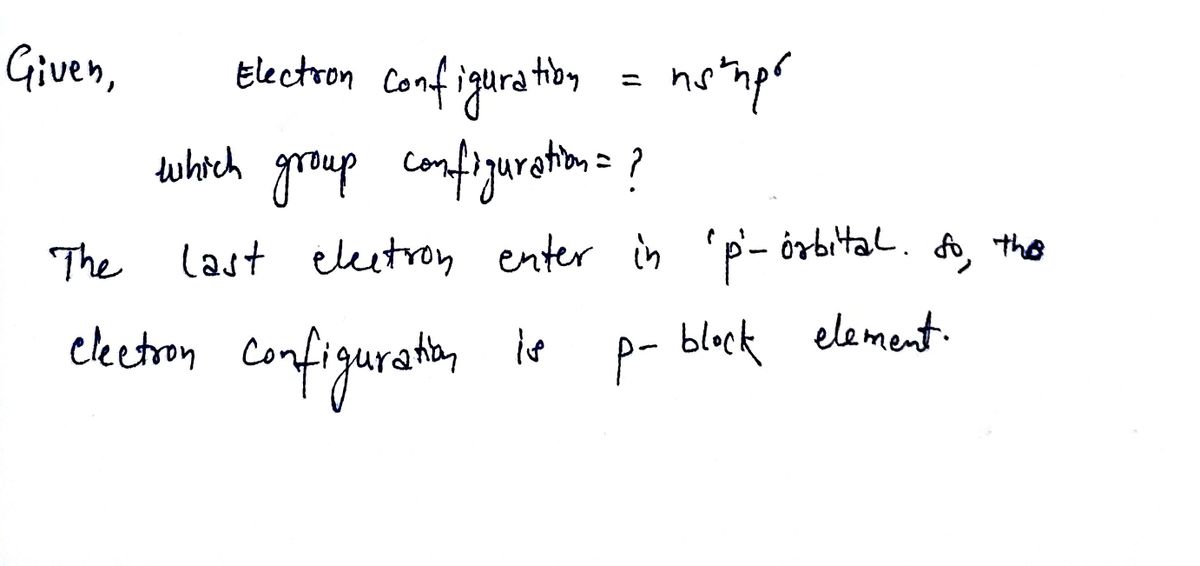 Given, Electron configuration = ns²np⁶
which group configuration = ?
The last electron enter in 'p'- orbital. So, the
electron configuration is p- block element.